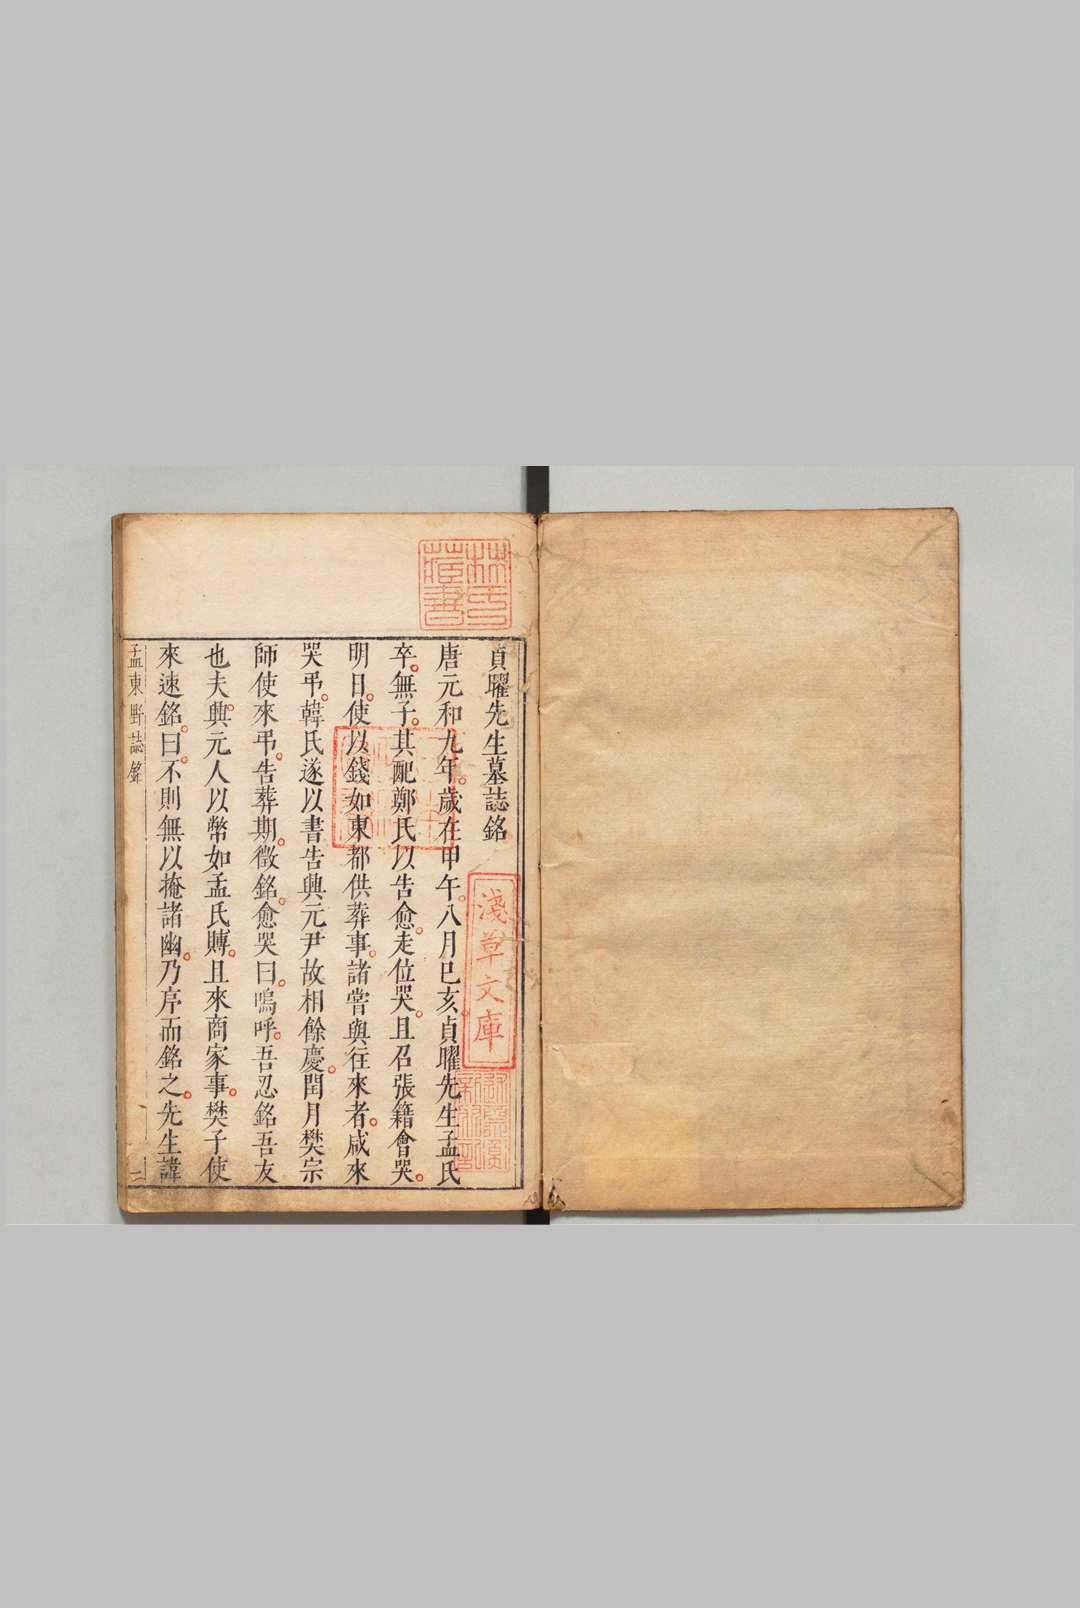 貞曜先生墓誌銘
唐元和九年歲在甲午八月已亥貞曜先生孟氏
卒無子其配鄭氏以告愈走位哭且召張籍會哭
明日使以錢如東都供葬事諸嘗與往來者咸來
哭弔韓氏遂以書告興元尹故相餘慶閏月樊宗
師使來弔告葬期徵銘愈哭曰嗚呼吾忍銘吾友
也夫興元人以幣如孟氏賻且來商家事樊子使
來速銘曰不則無以掩諸幽乃序而銘之先生諱
孟東野誌銘
一
林氏藏書
淺草文庫